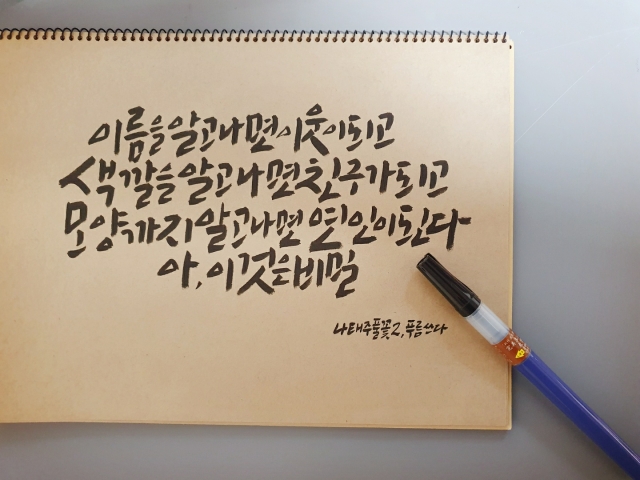 이름을 알고 나면 이웃이 되고
색깔을 알고 나면 친구가 되고
모양까지 알고 나면 연인이 된다
아, 이것은 비밀
나태주 풀꽃2, 푸름쓰다